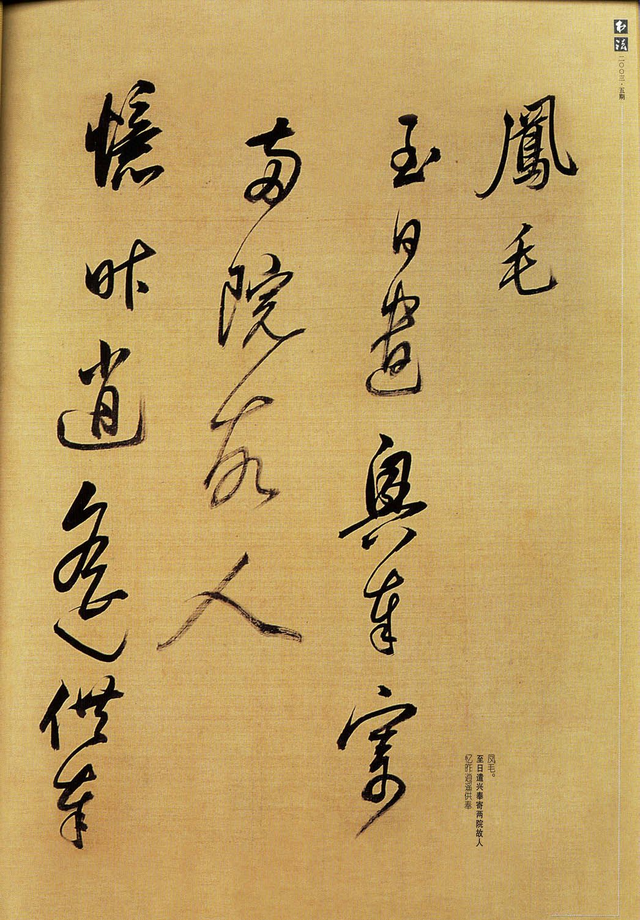 鳳毛
至日遣興奉寄
兩院故人
憶昨逍遙供奉
书法
二〇〇三·五期
凤毛。
至日遣兴奉寄两院故人
忆昨逍遥供奉